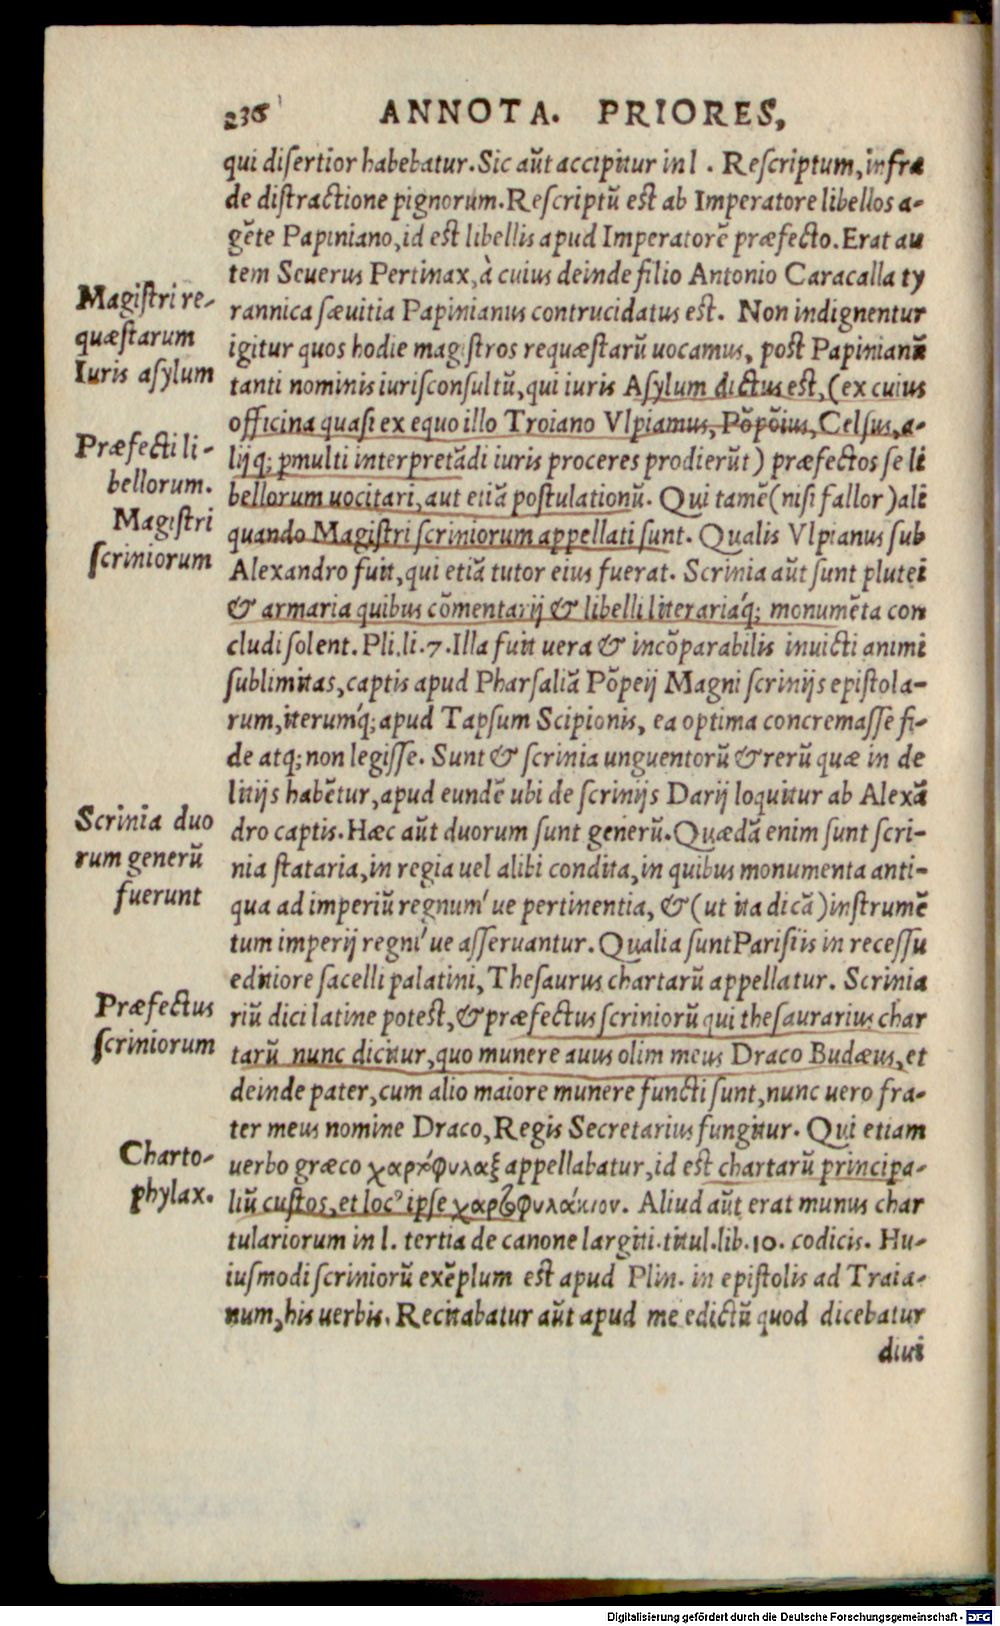 236 ANNOTA. PRIORES,
qui disertior habebatur. Sic aũt accipitur in l. Rescriptum, infra
de distractione pignorum. Rescriptũ est ab Imperatore libellos a-
gẽte Papiniano, id est libellis apud Imperatorẽ præfecto. Erat au
tem Seuerus Pertinax, à cuius deinde filio Antonio Caracalla ty
rannica sæuitia Papinianus contrucidatus est. Non indignentur
igitur quos hodie magistros requæstarũ uocamus, post Papinianũ
tanti nominis iurisconsultũ, qui iuris Asylum dictus est, (ex cuius
officina quasi ex equo illo Troiano Vlpianus, Põpõius, Celsus, a-
lijq; pmulti interpretãdi iuris proceres prodierũt) præfectos se li
bellorum uocitari, aut etiã postulationũ. Qui tamẽ (nisi fallor) ali
quando Magistri scriniorum appellati sunt. Qualis Vlpianus sub
Alexandro fuit, qui etiã tutor eius fuerat. Scrinia aũt sunt plutei
& armaria quibus cõmentarij & libelli literariaq́; monumẽta con
cludi solent. Pli. li. 7. Illa fuit uera & incõparabilis inuicti animi
sublimitas, captis apud Pharsaliã Põpeij Magni scrinijs epistola-
rum, iterumq́; apud Tapsum Scipionis, ea optima concremasse fi-
de atq; non legisse. Sunt & scrinia unguentorũ & rerũ quæ in de
litijs habẽtur, apud eundẽ ubi de scrinijs Darij loquitur ab Alexã
dro captis. Hæc aũt duorum sunt generũ. Quædã enim sunt scri-
nia stataria, in regia uel alibi condita, in quibus monumenta anti-
qua ad imperiũ regnum'ue pertinentia, & (ut ita dicã) instrumẽ
tum imperij regni'ue asseruantur. Qualia sunt Parisiis in recessu
editiore sacelli palatini, Thesaurus chartarũ appellatur. Scrinia
riũ dici latine potest, & præfectus scriniorũ qui thesaurarius char
tarũ nunc dicitur, quo munere auus olim meus Draco Budæus, et
deinde pater, cum alio maiore munere functi sunt, nunc uero fra-
ter meus nomine Draco, Regis Secretarius fungitur. Qui etiam
uerbo græco χαρτόφυλαξ appellabatur, id est chartarũ principa-
liũ custos, et locꝰ ipse χαρτοφυλάκιον. Aliud aũt erat munus char
tulariorum in l. tertia de canone largiti. titul. lib. 10. codicis. Hu-
iusmodi scriniorũ exẽplum est apud Plin. in epistolis ad Traia-
num, his uerbis. Recitabatur aũt apud me edictũ quod dicebatur
diui
Magistri re-
quæstarum
Iuris asylum
Præfecti li-
bellorum.
Magistri
scriniorum
Scrinia duo
rum generũ
fuerunt
Præfectus
scriniorum
Charto-
phylax.
Digitalisierung gefördert durch die Deutsche Forschungsgemeinschaft - DFG